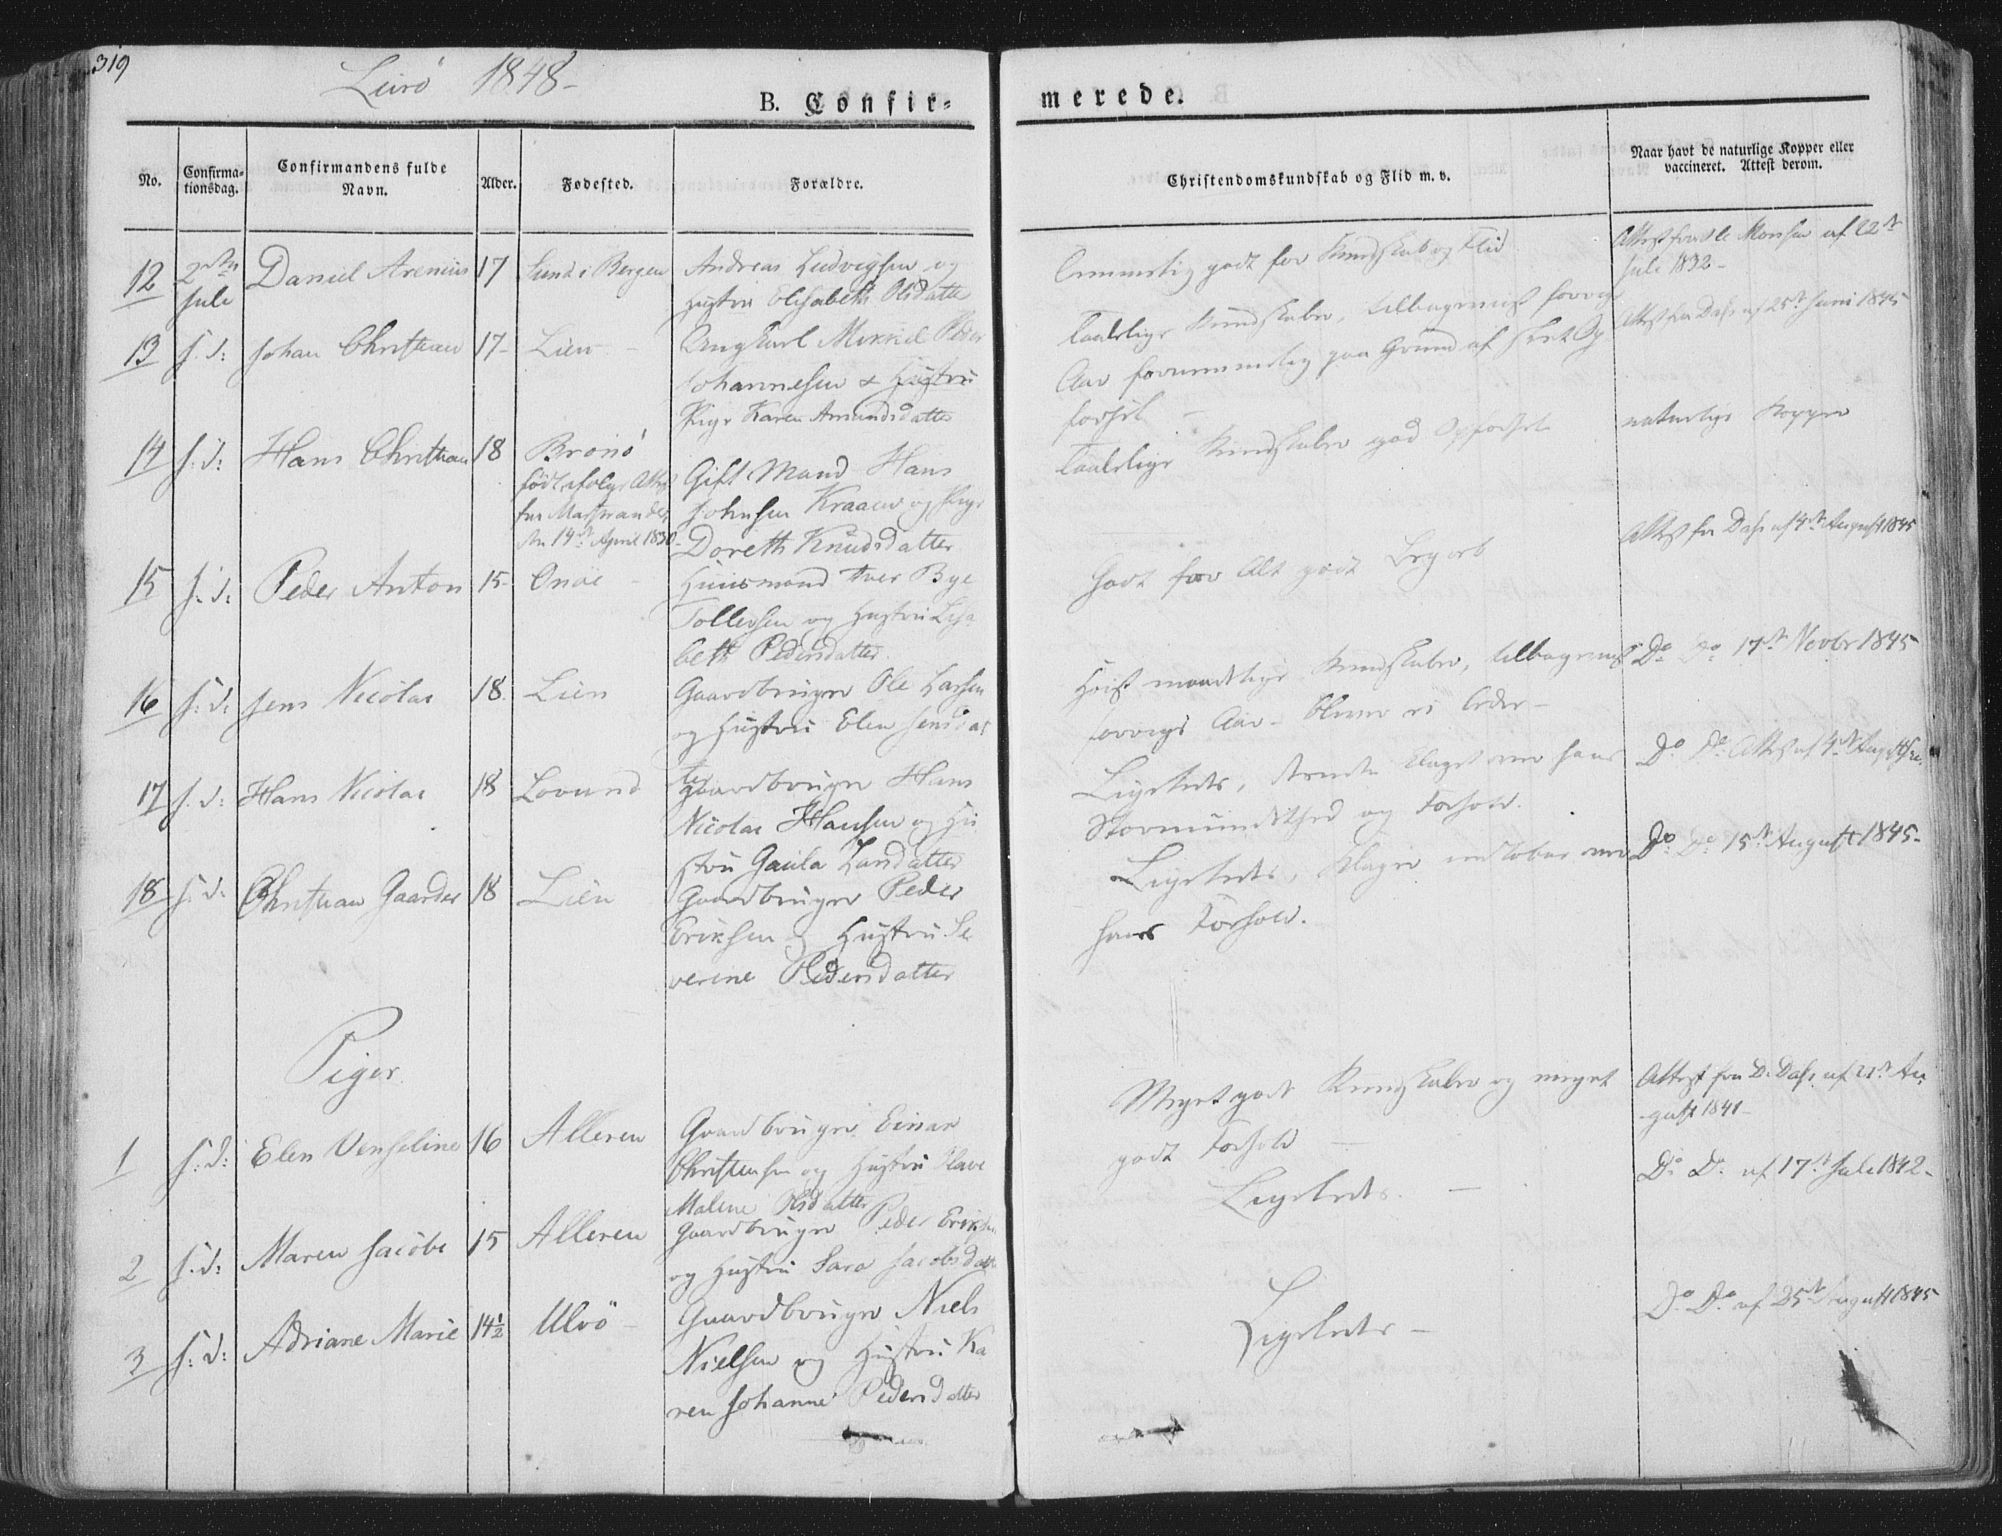 319
Lurö 1848-
B. Confir-
merede.
No.
Confirma-
tionsdag.
Confirmandens fulde
Navn.
Alder.
Fødested.
Forældre.
Christendomskundskab og Flid m. v.
Naar havt de naturlige Kopper eller
vaccineret. Attest derom.
12 2den Juli Daniel Arenius 17 Sund i Bergen Andreas Ludvigsen og
Hustru Elisabeth Olsdatter
godt for Kundskab og Flid
Attest fra Monsen af 22de
Juli 1832-
13 s. d: Johan Christian 17- Lien - Ungkarl Mikkel Peder
Johannesen & Hustru
Pige Karen Amundsdatter
Taalelige Kundskaber, tilbageviist forrige
Aar fornemmelig paa Grund af slet Op
førsel -
Attest fra Dahs af 25de Juni 1845
14 s. d: Hans Christian 18 Brönö
født ifølge Attest
fra
den 14de April 1830- Gift Mand Hans
Johnsen og Pige
Doreth Knudsdatter
Taalelige Kundskaber god Opførsel
naturlige Kopper
15 s. d: Peder Anton 15- Onöe - Huusmand Iver Bye
Tollevsen og Hustru Lisa
beth Pedersdatter
Godt for Alt godt Begreb
Attest fra Dahs af 4de August 1845
16 s: d: Jens Nicolai 18. Lien Gaardbruger Ole Larsen
og Hustru Elen Jensdat
ter
Høist maadelige Kundskaber, tilbageviist
forrige Aar -
Do Do 17de Novbr 1845
17 s. d: Hans Nicolai 18 Lovund Gaardbruger Hans
Nicolai Hansen og Hu
stru Gaula Larsdatter
Ligeledes, klaget over hans
og Forhold.
Do Do Attest af 4de August
18 s: d: Christian Gaarder 18 Lien Gaardbruger Peder
Eriksen og Hustru Se
verine Pedersdatter
Ligeledes, Klager over
hans Forhold.
Do Do 15de August 1845-
Piger.
1 s: d: Elen Venseline 16 Alleren Gaardbruger Einar
Christensen og Hustru Olave
Malene Olsdatter
Meget gode Kundskaber og meget
godt Forhold -
Attest fra D. Dahs af 21de Au
gust 1841-
2 s. d: Maren Jacobe 15 Alleren Gaardbruger Peder Eriksen
og Hustru Sara Jacobsdatt
Ligeledes. -
Do Do af 17de Juli 1842-
3 s: d: Adriane Marie 14½ Ulvö - Gaardbruger Niels
Nielsen og Hustru Ka
ren Johanne Pedersdatter
Ligeledes -
Do Do af 25de August 1845